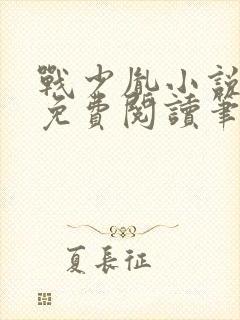 戰少胤小說
免費閱讀筆
夏長征